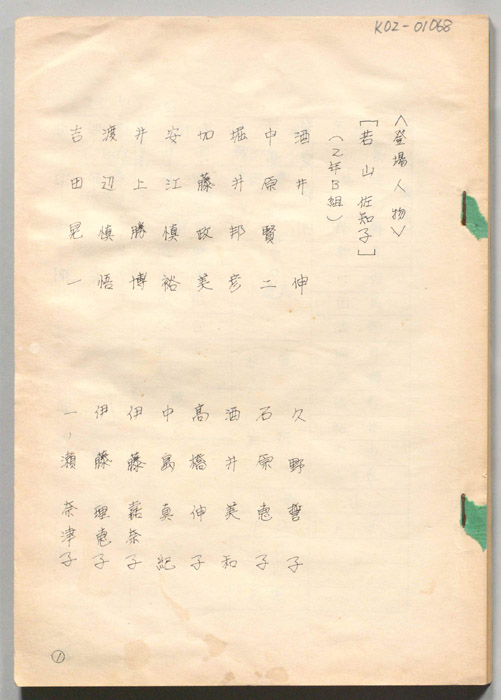 K02-01068
＜登場人物＞
［若山佐知子］
（2年B組）
酒井　伸
中原賢二
堀井邦彦
加藤政美
安江慎裕
井上勝博
渡辺慎悟
吉田晃一
久野誓子
石原恵子
酒井美知
高橋伸子
中島真紀
伊藤嘉奈子
伊藤理恵子
一ノ瀬奈津子
①